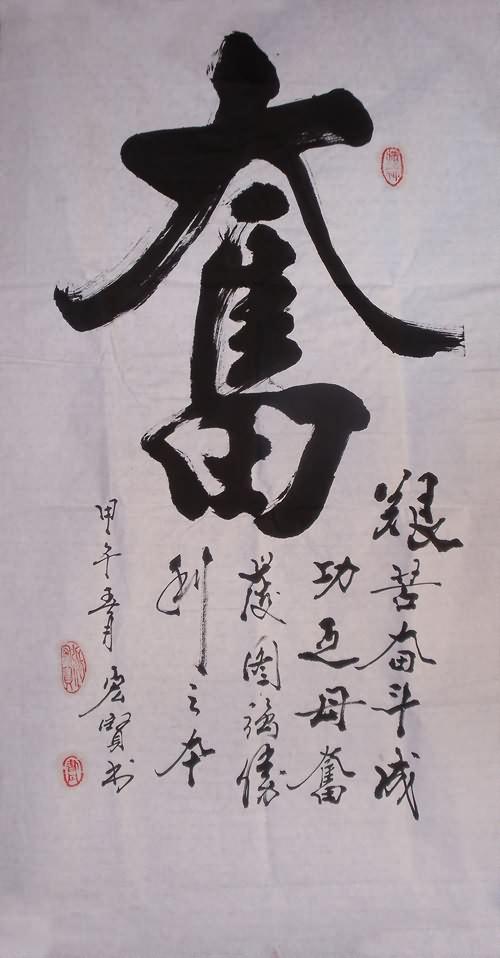 奮
艱苦奋斗成
功之母奮
發圖強勝
利之本
甲午五月
宏寶书